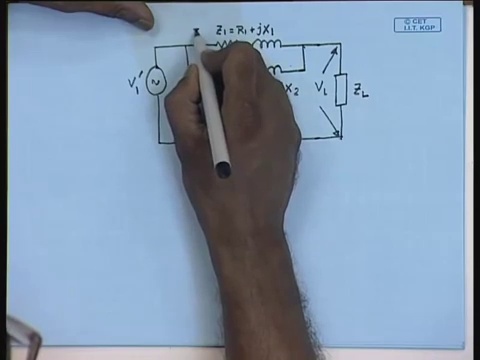 © CET
I.I.T. KGP
Z₁ = R₁ + jX₁
V₁'
X₂
V_L
Z_L